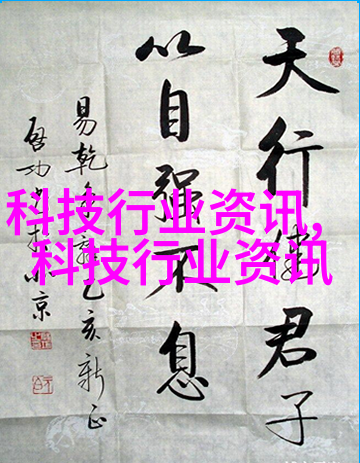 天行健君子
以自强不息
易乾象辞乙亥新正
启功书于北京
科技行业资讯,
科技行业资讯